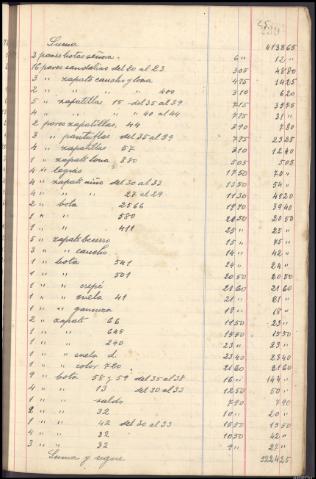 Suma 413865
3 pares botas señora. 6 " 12 "
16 pares sandalias del 20 al 23 305 4880
3 " zapato caucho y lona 475 1425
2 " " " " 400 310 620
5 " zapatillas 15 del 35 al 39 715 3575
4 " " " 40 al 44 775 31 "
2 pares zapatillas, 44 390 780
3 " pantuflas del 35 al 39 775 2325
4 " zapatillas 57 310 1240
1 " zapato lona 330 505 505
4 " 1750 70 "
4 " zapato niño del 30 al 33 1350 54 "
4 " " " 27 al 29 1130 4520
2 " bota 2566 1970 3940
1 " " 580 2050 2050
1 " " 411 25 " 25 "
5 " zapato becerro 15 " 75 "
3 " " caucho 14 " 42 "
1 " bota 541 24 " 24 "
1 " " 501 2050 2050
1 " " crepé 2160 2160
1 " " suela 41 21 " 21 "
1 " " gamuza 18 " 18 "
2 " zapato 66 1150 23 "
1 " " 645 1550 1550
1 " " 240 23 " 23 "
1 " " suela d. 2340 2340
1 " " color 720 2160 2160
9 " bota 58 y 59 del 35 al 38 16 " 144 "
4 " " 13 del 30 al 33 1250 50 "
1 " " saldo 790 790
2 " " 32 10 " 20 "
1 " " 42 del 30 al 33 1550 1550
4 " " 32 1050 42 "
3 " " 32 9 " 27 "
Suma y sigue 522425